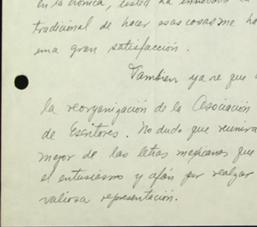 en la crónica, usted ha innovado
tradicional de hacer esas cosas me ha
una gran satisfacción.
También ya ve que
la reorganización de la Asociación
de Escritores. No dudo que reunirá
mejor de las letras mexicanas que
el entusiasmo y afán por realzar
valiosa representación.